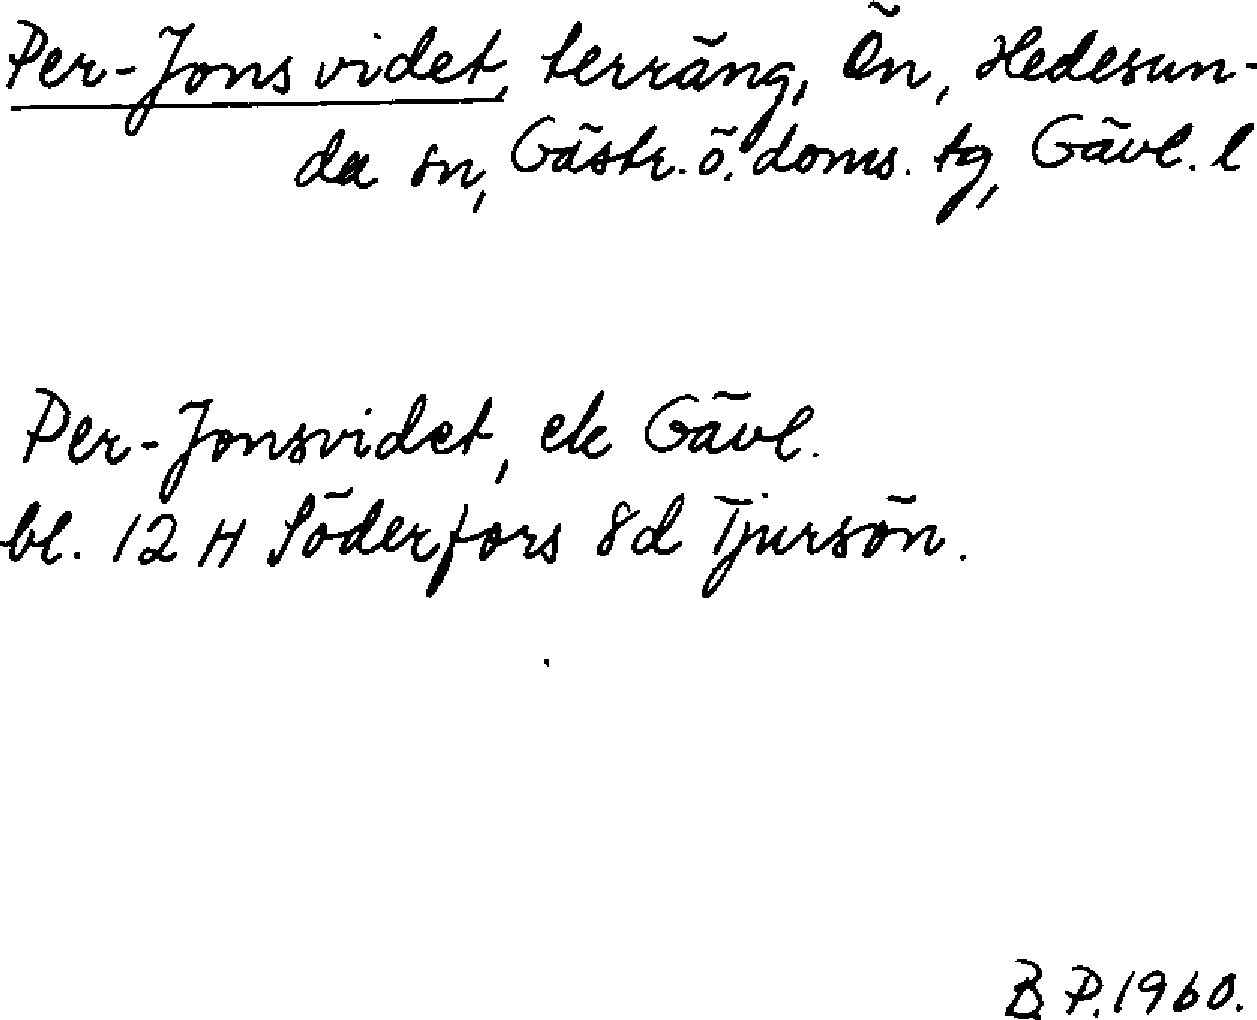 Per-Jonsvidet, terräng, Ön, Hedesun-
da sn, Gästr. ö. doms. tg, Gävl. l
Per-Jonsvidet, ek Gävl.
bl. 12 H Söderfors 8d Tjursön.
B.P. 1960.